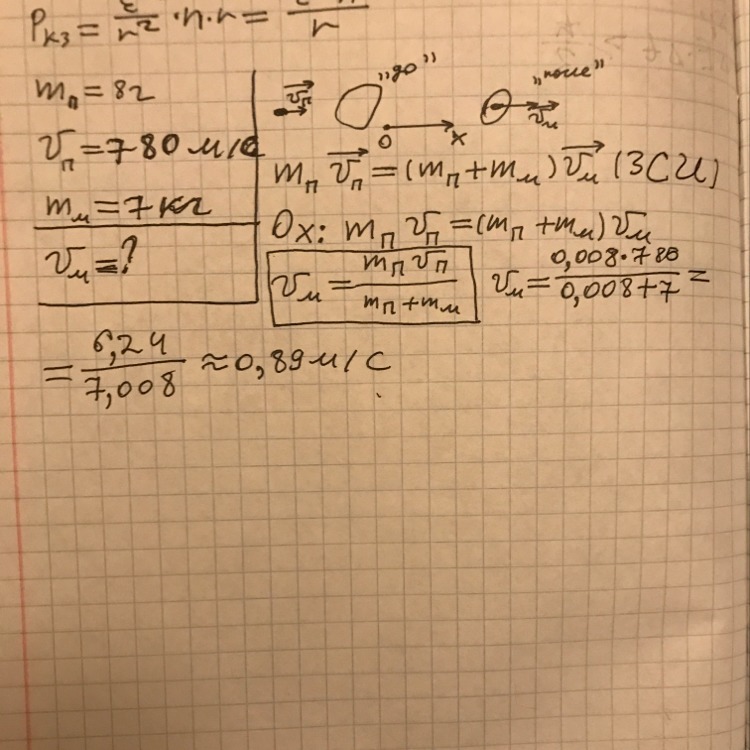 P_кз = ε/r² · n · r = 
m_п = 8г
v_п = 780 м/с
m_м = 7 кг
v_м = ?
v_п „до” „после” v_м
0 x
m_п v_п = (m_п + m_м) v_м (ЗСИ)
Ox: m_п v_п = (m_п + m_м) v_м
v_м = m_п v_п / (m_п + m_м) v_м = 0,008·780 / (0,008+7) =
= 6,24 / 7,008 ≈ 0,89 м/с